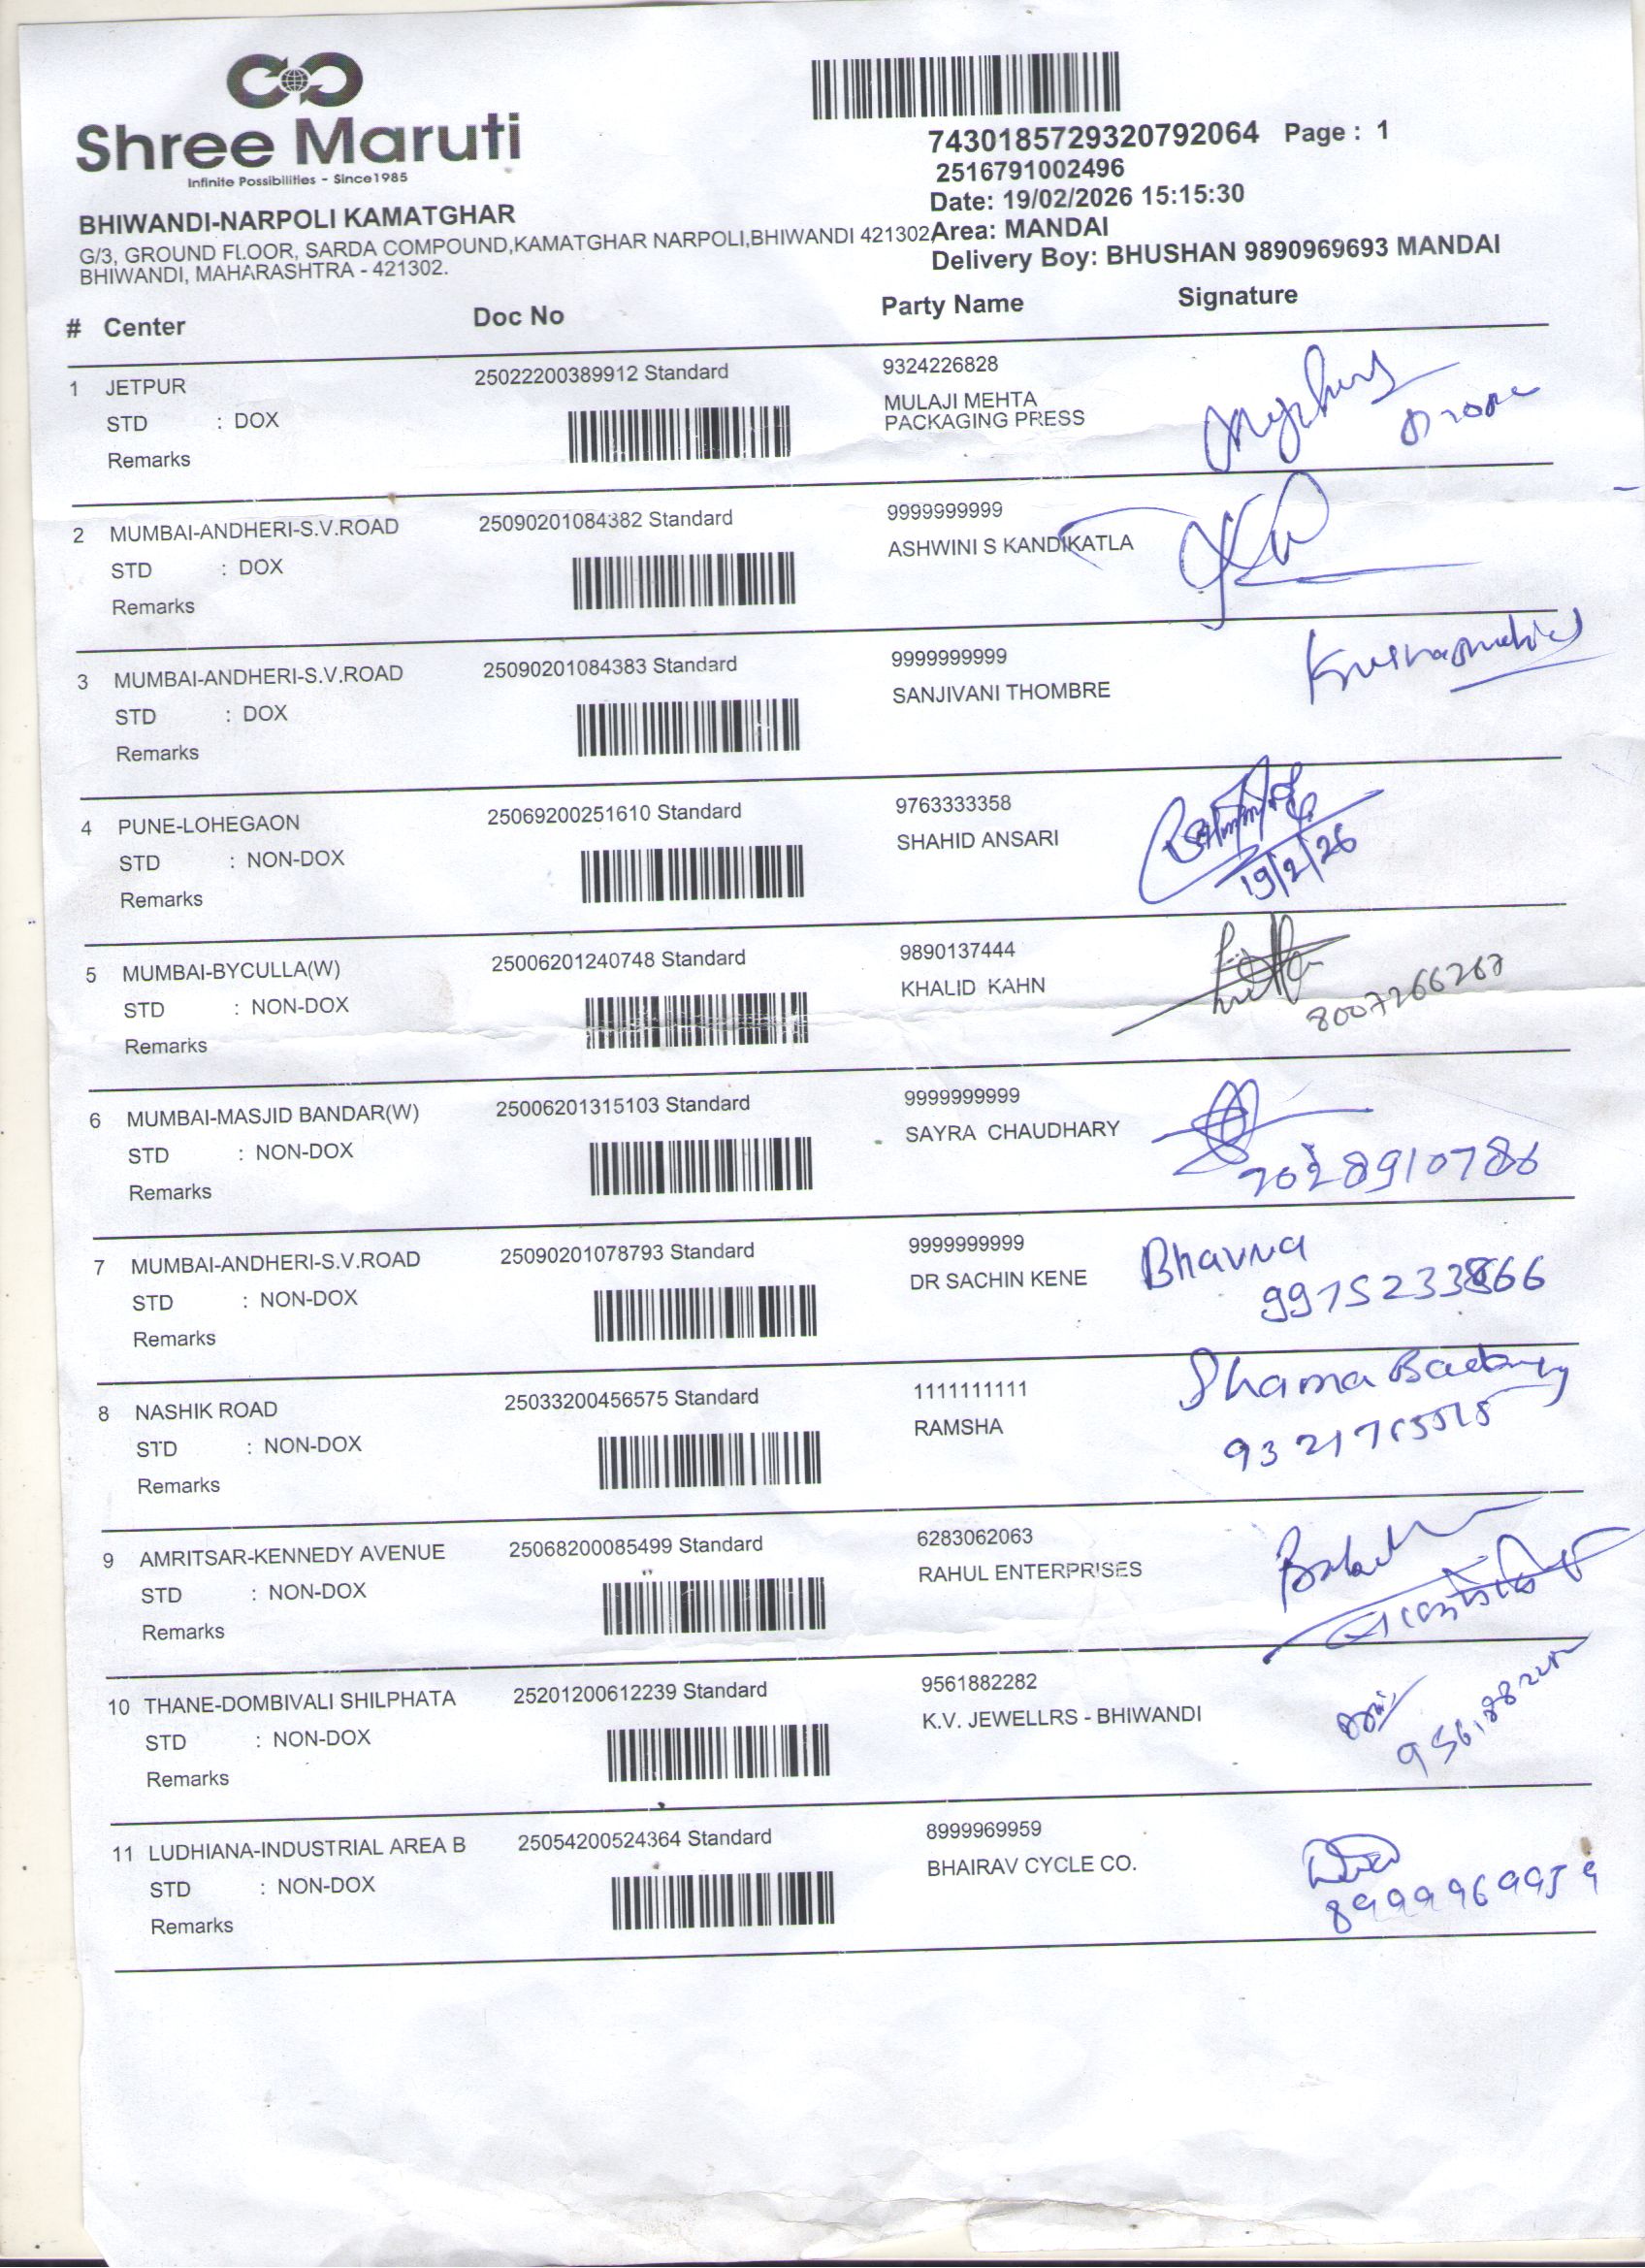 Shree Maruti
Infinite Possibilities - Since1985
7430185729320792064 Page : 1
2516791002496
Date: 19/02/2026 15:15:30
Area: MANDAI
Delivery Boy: BHUSHAN 9890969693 MANDAI
BHIWANDI-NARPOLI KAMATGHAR
G/3, GROUND FLOOR, SARDA COMPOUND,KAMATGHAR NARPOLI,BHIWANDI 421302
BHIWANDI, MAHARASHTRA - 421302.
# Center Doc No Party Name Signature
1 JETPUR 25022200389912 Standard 9324226828
STD : DOX MULAJI MEHTA
PACKAGING PRESS
Remarks
2 MUMBAI-ANDHERI-S.V.ROAD 25090201084382 Standard 9999999999
STD : DOX ASHWINI S KANDIKATLA
Remarks
3 MUMBAI-ANDHERI-S.V.ROAD 25090201084383 Standard 9999999999
STD : DOX SANJIVANI THOMBRE
Remarks
4 PUNE-LOHEGAON 25069200251610 Standard 9763333358
STD : NON-DOX SHAHID ANSARI
19/2/26
Remarks
5 MUMBAI-BYCULLA(W) 25006201240748 Standard 9890137444
STD : NON-DOX KHALID KAHN
8007266267
Remarks
6 MUMBAI-MASJID BANDAR(W) 25006201315103 Standard 9999999999
STD : NON-DOX SAYRA CHAUDHARY
7028910786
Remarks
7 MUMBAI-ANDHERI-S.V.ROAD 25090201078793 Standard 9999999999 Bhavna
STD : NON-DOX DR SACHIN KENE
Remarks
8 NASHIK ROAD 25033200456575 Standard 1111111111 Shama
STD : NON-DOX RAMSHA
Remarks
9 AMRITSAR-KENNEDY AVENUE 25068200085499 Standard 6283062063
STD : NON-DOX RAHUL ENTERPRISES
Remarks
10 THANE-DOMBIVALI SHILPHATA 25201200612239 Standard 9561882282
STD : NON-DOX K.V. JEWELLRS - BHIWANDI
Remarks
11 LUDHIANA-INDUSTRIAL AREA B 25054200524364 Standard 8999969959
STD : NON-DOX BHAIRAV CYCLE CO.
8999969959
Remarks